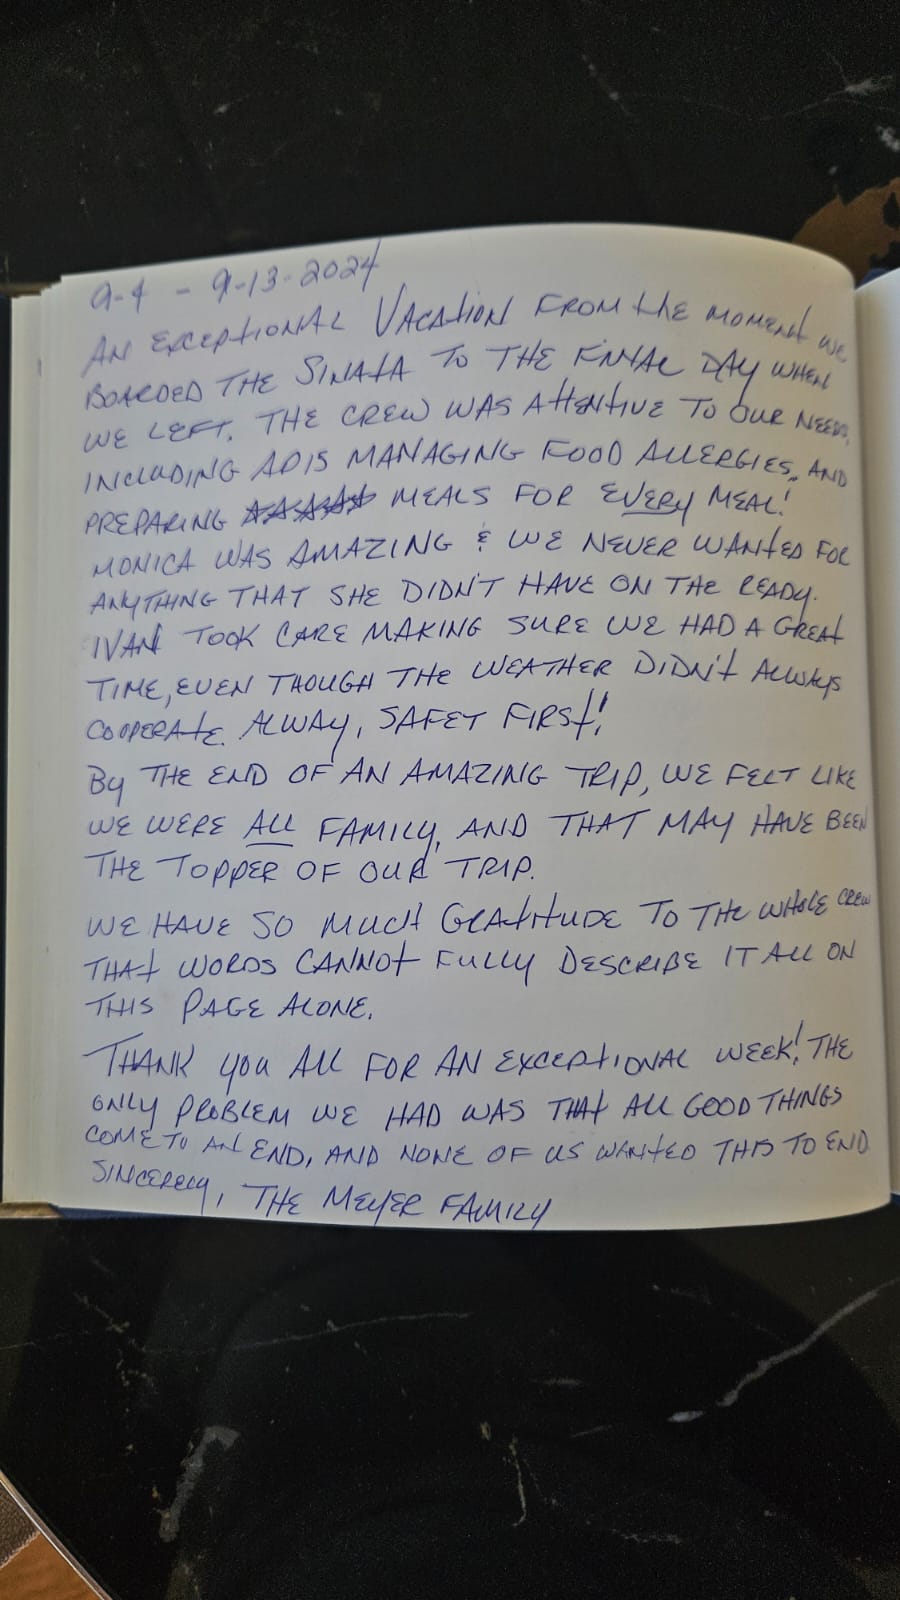 9-4 - 9-13-2024
AN EXCEPTIONAL VACATION FROM the MOMENT WE
BOARDED THE SINATA TO THE FINAL DAY WHEN
WE LEFT. THE CREW WAS ATTENTIVE TO OUR NEEDS,
INCLUDING ADIS MANAGING FOOD ALLERGIES, AND
PREPARING MEALS FOR EVERY MEAL!
MONICA WAS AMAZING & WE NEVER WANTED FOR
ANYTHING THAT SHE DIDN'T HAVE ON THE READY.
IVAN TOOK CARE MAKING SURE WE HAD A GREAT
TIME, EVEN THOUGH THE WEATHER DIDN'T ALWAYS
COOPERATE. ALWAY, SAFET FIRST!
By THE END OF AN AMAZING TRIP, WE FELT LIKE
WE WERE ALL FAMILY, AND THAT MAY HAVE BEEN
THE TOPPER OF OUR TRIP.
WE HAVE SO MUCH GRATITUDE TO THE WHOLE CREW
THAT WORDS CANNOT FULLY DESCRIBE IT ALL ON
THIS PAGE ALONE.
THANK you ALL FOR AN EXCEPTIONAL WEEK! THE
ONLY PROBLEM WE HAD WAS THAT ALL GOOD THINGS
COME TO AN END, AND NONE OF US WANTED THIS TO END
SINCERELY, THE MEYER FAMILY